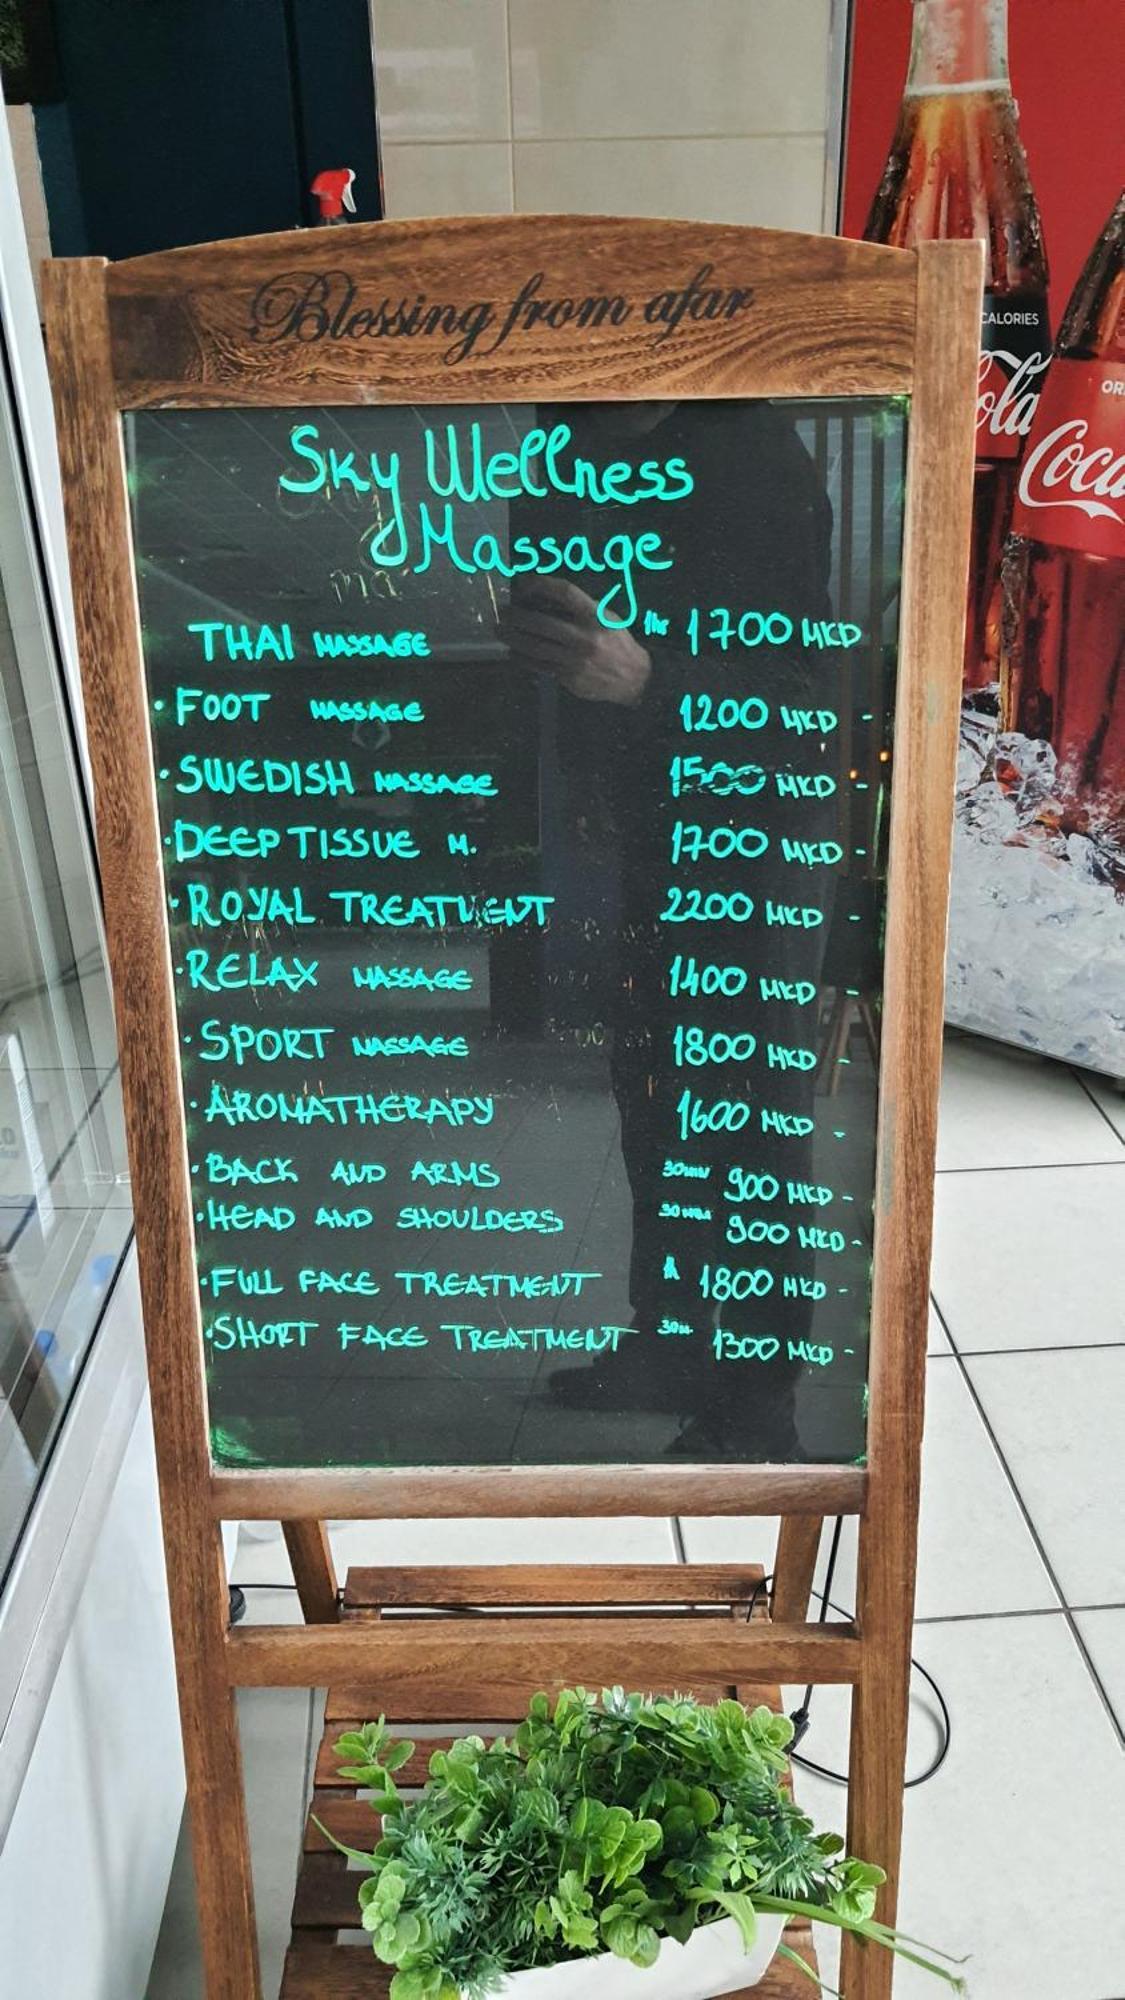 Blessing from afar
Sky Wellness
Massage
THAI MASSAGE 1hr 1700 MKD
· FOOT MASSAGE 1200 MKD -
· SWEDISH MASSAGE 1500 MKD -
· DEEP TISSUE M. 1700 MKD -
· ROYAL TREATMENT 2200 MKD -
· RELAX MASSAGE 1400 MKD -
· SPORT MASSAGE 1800 MKD -
· AROMATHERAPY 1600 MKD -
· BACK AND ARMS 30min 900 MKD -
· HEAD AND SHOULDERS 30min 900 MKD -
· FULL FACE TREATMENT 1800 MKD -
· SHORT FACE TREATMENT 30m. 1300 MKD -
CALORIES
Cola
Coca